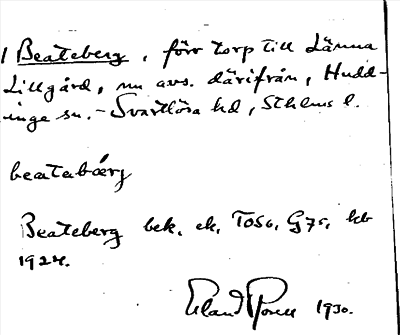 1 Beateberg, förr torp till Länna
Lillgård, nu avs. därifrån, Hudd-
inge sn. - Svartlösa hd, Sthlms l.
beatabærg
Beateberg bek. ek. TOS6, G75, kb
1924.
Erland 1930.